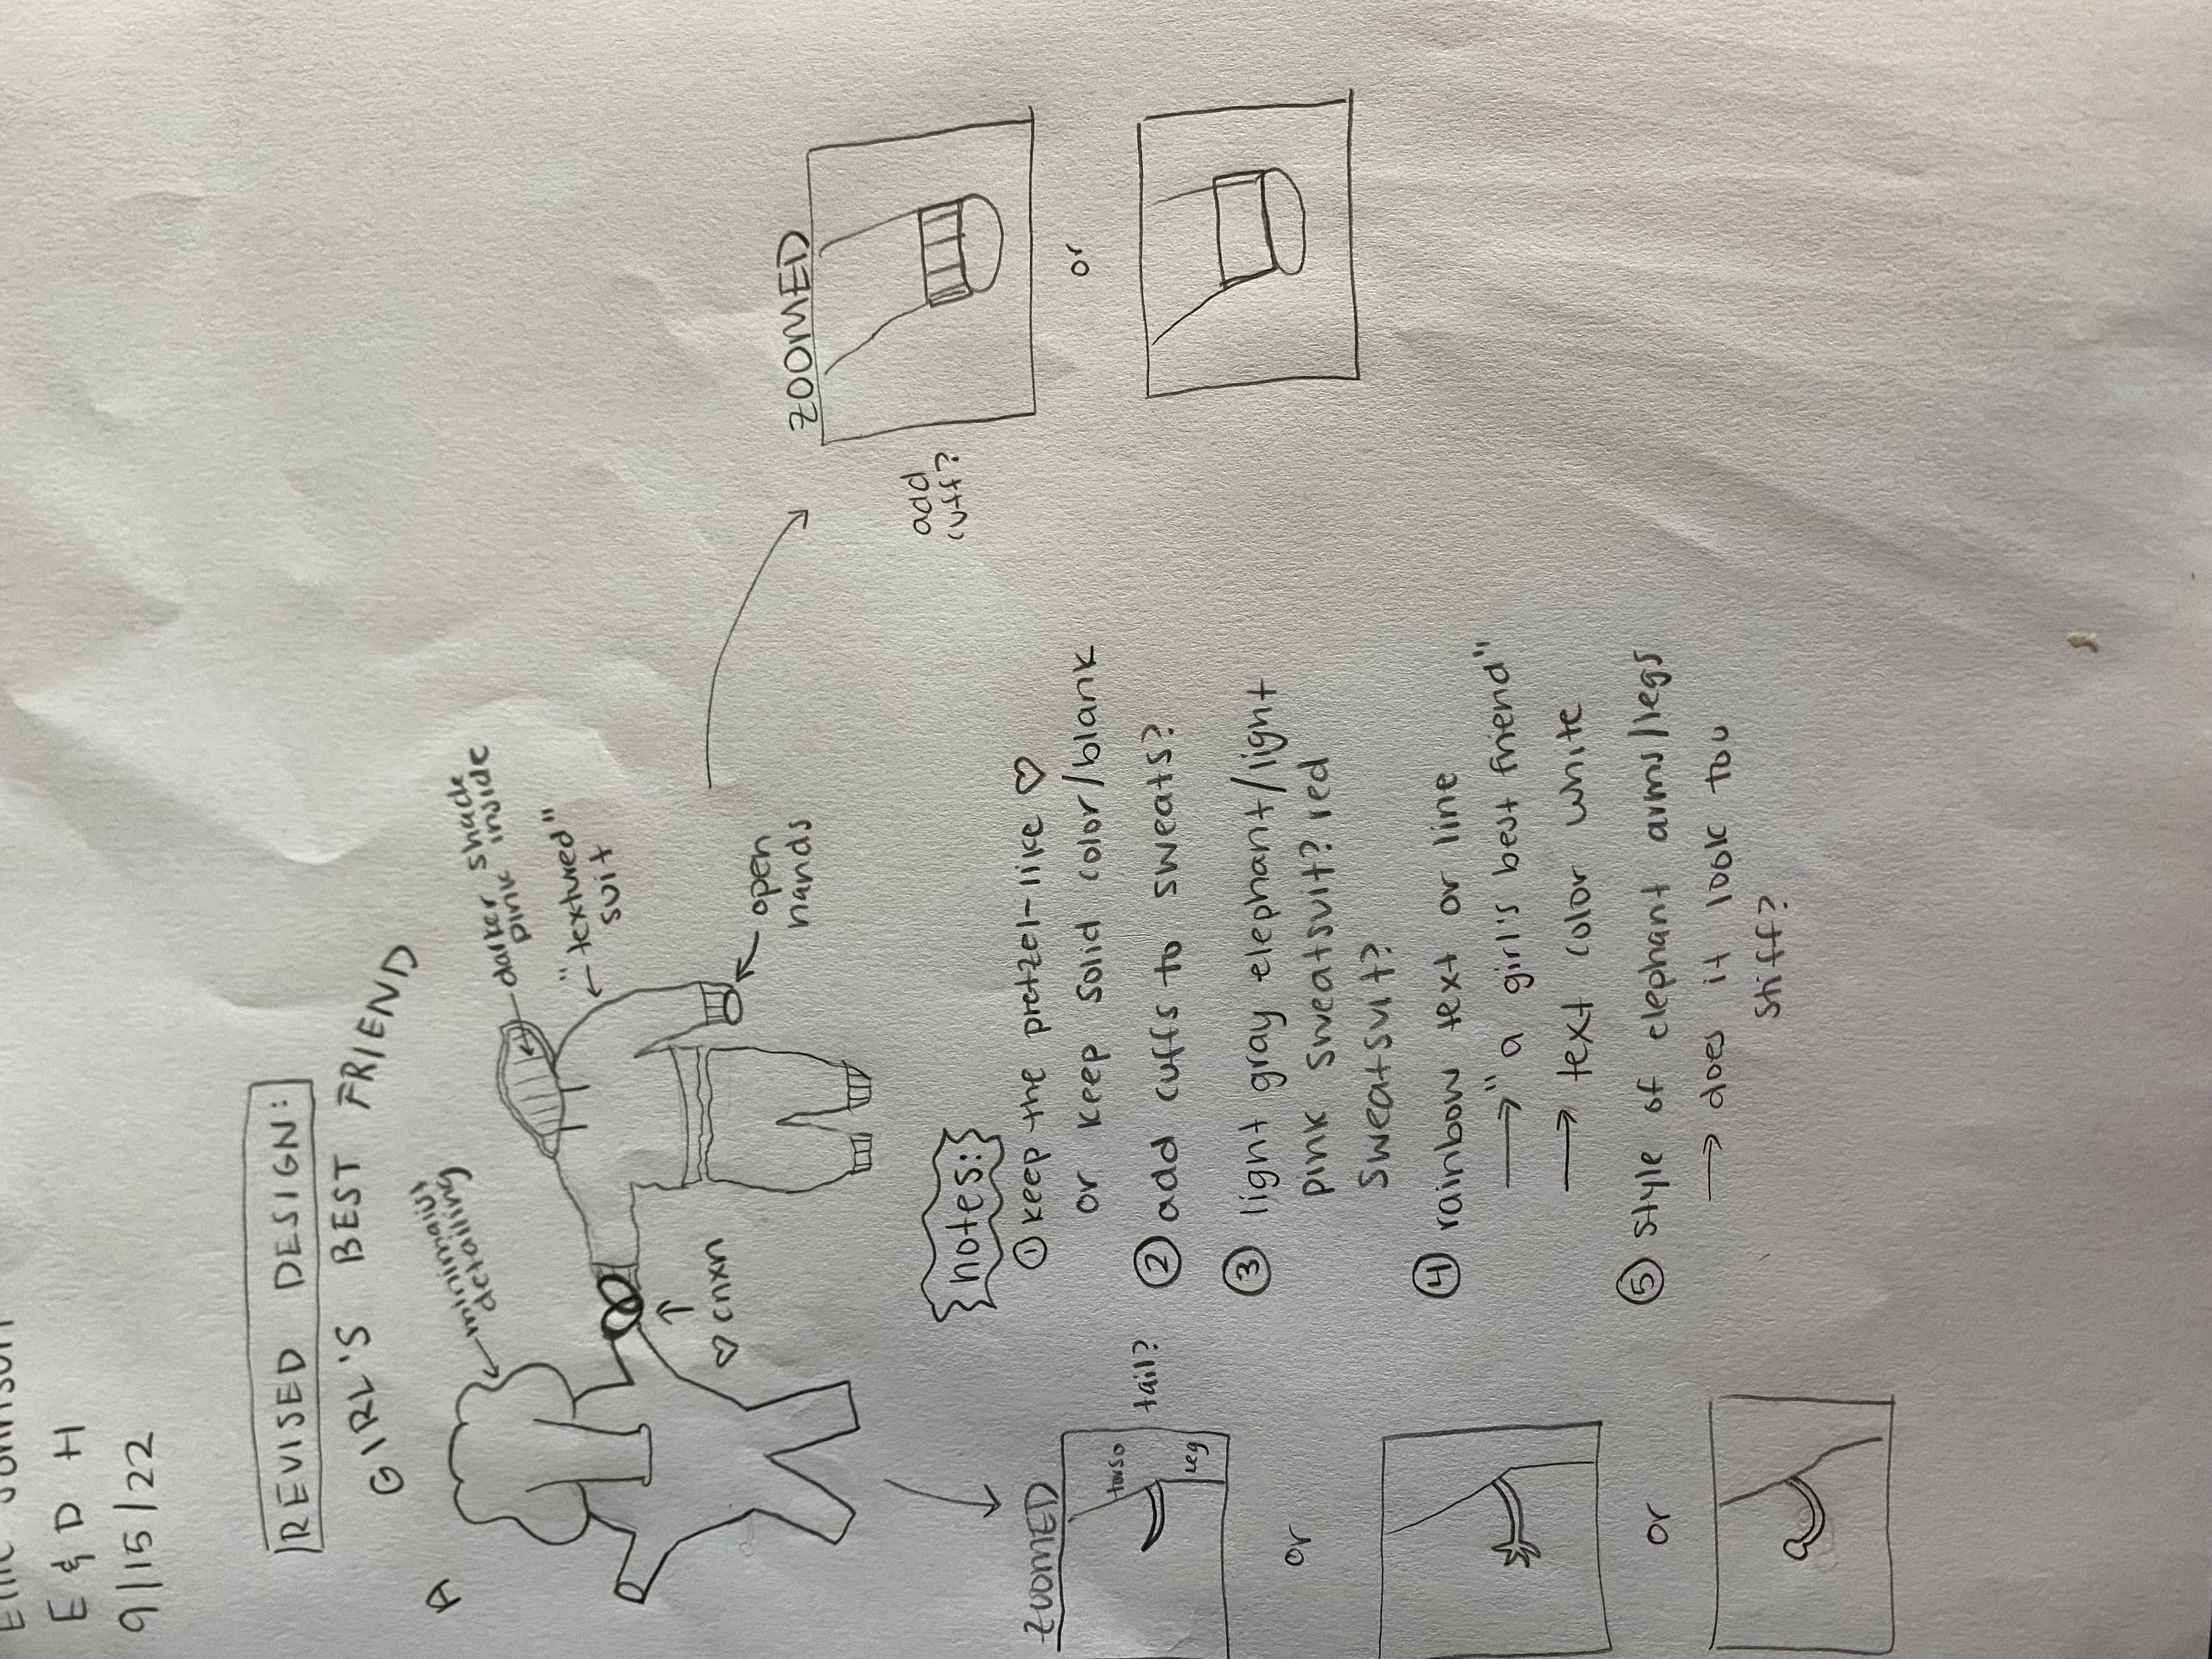 Johnson
E & D H
9/15/22
REVISED DESIGN:
A GIRL'S BEST FRIEND
minimalist
detailing
darker shade
pink inside
"textured"
suit
♡ cnxn
open
hands
ZOOMED
add
cuff?
or
ZOOMED
torso
leg
tail?
or
or
notes:
① keep the pretzel-like ♡
or keep solid color/blank
② add cuffs to sweats?
③ light gray elephant/light
pink sweatsuit? red
sweatsuit?
④ rainbow text or line
→ "a girl's best friend"
→ text color white
⑤ style of elephant arms/legs
→ does it look too
stiff?